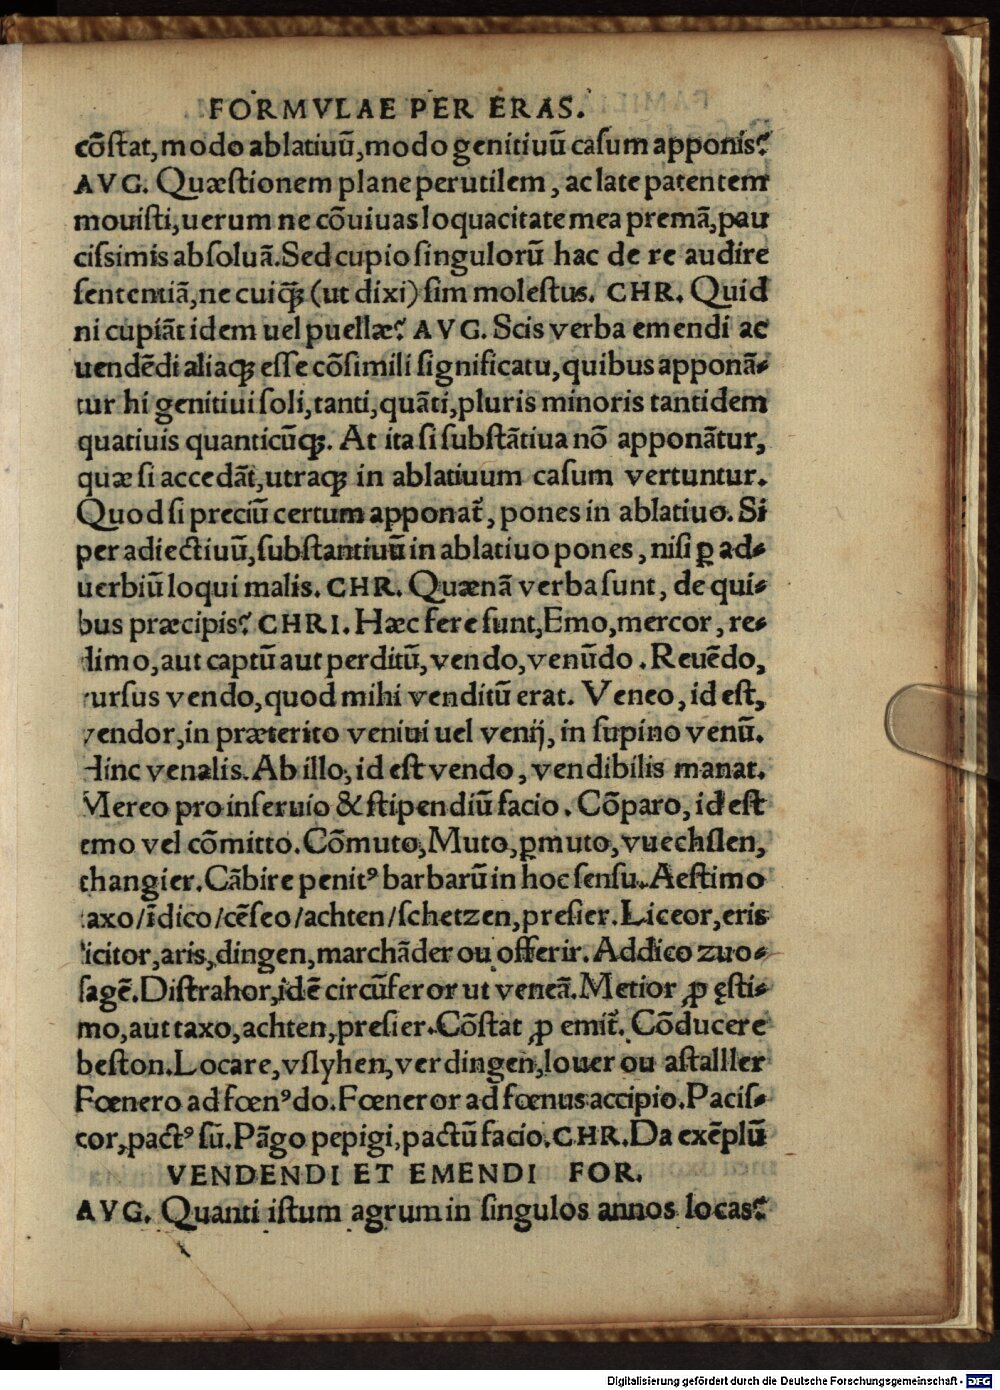 FORMVLAE PER ERAS.
cõſtat, modo ablatiuũ, modo genitiuũ caſum apponis?
AVG. Quæſtionem plane perutilem, ac late patentem
mouiſti, uerum ne cõuiuas loquacitate mea premã, pau
ciſsimis abſoluã. Sed cupio ſingulorũ hac de re audire
ſententiã, ne cuiq̃ꝫ (ut dixi) ſim moleſtus. CHR. Quid
ni cupiãt idem uel puellæ? AVG. Scis verba emendi ac
uendẽdi aliaqꝫ eſſe cõſimili ſignificatu, quibus apponã⸗
tur hi genitiui ſoli, tanti, quãti, pluris minoris tantidem
quatiuis quanticũqꝫ. At ita ſi ſubſtãtiua nõ apponãtur,
quæ ſi accedãt, utraqꝫ in ablatiuum caſum vertuntur.
Quod ſi preciũ certum apponat᷑, pones in ablatiuo. Si
per adiectiuũ, ſubſtantiuũ in ablatiuo pones, niſi ꝑ ad⸗
uerbiũ loqui malis. CHR. Quænã verba ſunt, de qui⸗
bus præcipis? CHRI. Hæc fere ſunt, Emo, mercor, re⸗
dimo, aut captũ aut perditũ, vendo, venũdo. Reuẽdo,
rurſus vendo, quod mihi venditũ erat. Veneo, id eſt,
vendor, in præterito veniui uel venij, in ſupino venũ.
Hinc venalis. Ab illo, id eſt vendo, vendibilis manat.
Mereo pro inſeruio & ſtipendiũ facio. Cõparo, id eſt
emo vel cõmitto. Cõmuto, Muto, ꝑmuto, vuechſlen,
changier. Cãbire penitꝰ barbarũ in hoc ſenſu. Aeſtimo
taxo/ĩdico/cẽſeo/achten/ſchetzen, preſier. Liceor, eris
licitor, aris, dingen, marchãder ou offerir. Addico zuo⸗
ſagẽ. Diſtrahor, idẽ circũferor ut veneã. Metior ꝓ ęſti⸗
mo, aut taxo, achten, preſier. Cõſtat ꝓ emit᷑. Cõducere
beſton. Locare, vſlyhen, verdingen, louer ou aſtalller
Fœnero ad fœnꝰdo. Fœneror ad fœnus accipio. Paciſ⸗
cor, pactꝰ sũ. Pãgo pepigi, pactũ facio. CHR. Da exẽplũ
VENDENDI ET EMENDI FOR.
AVG. Quanti iſtum agrum in ſingulos annos locas?
Digitalisierung gefördert durch die Deutsche Forschungsgemeinschaft - DFG